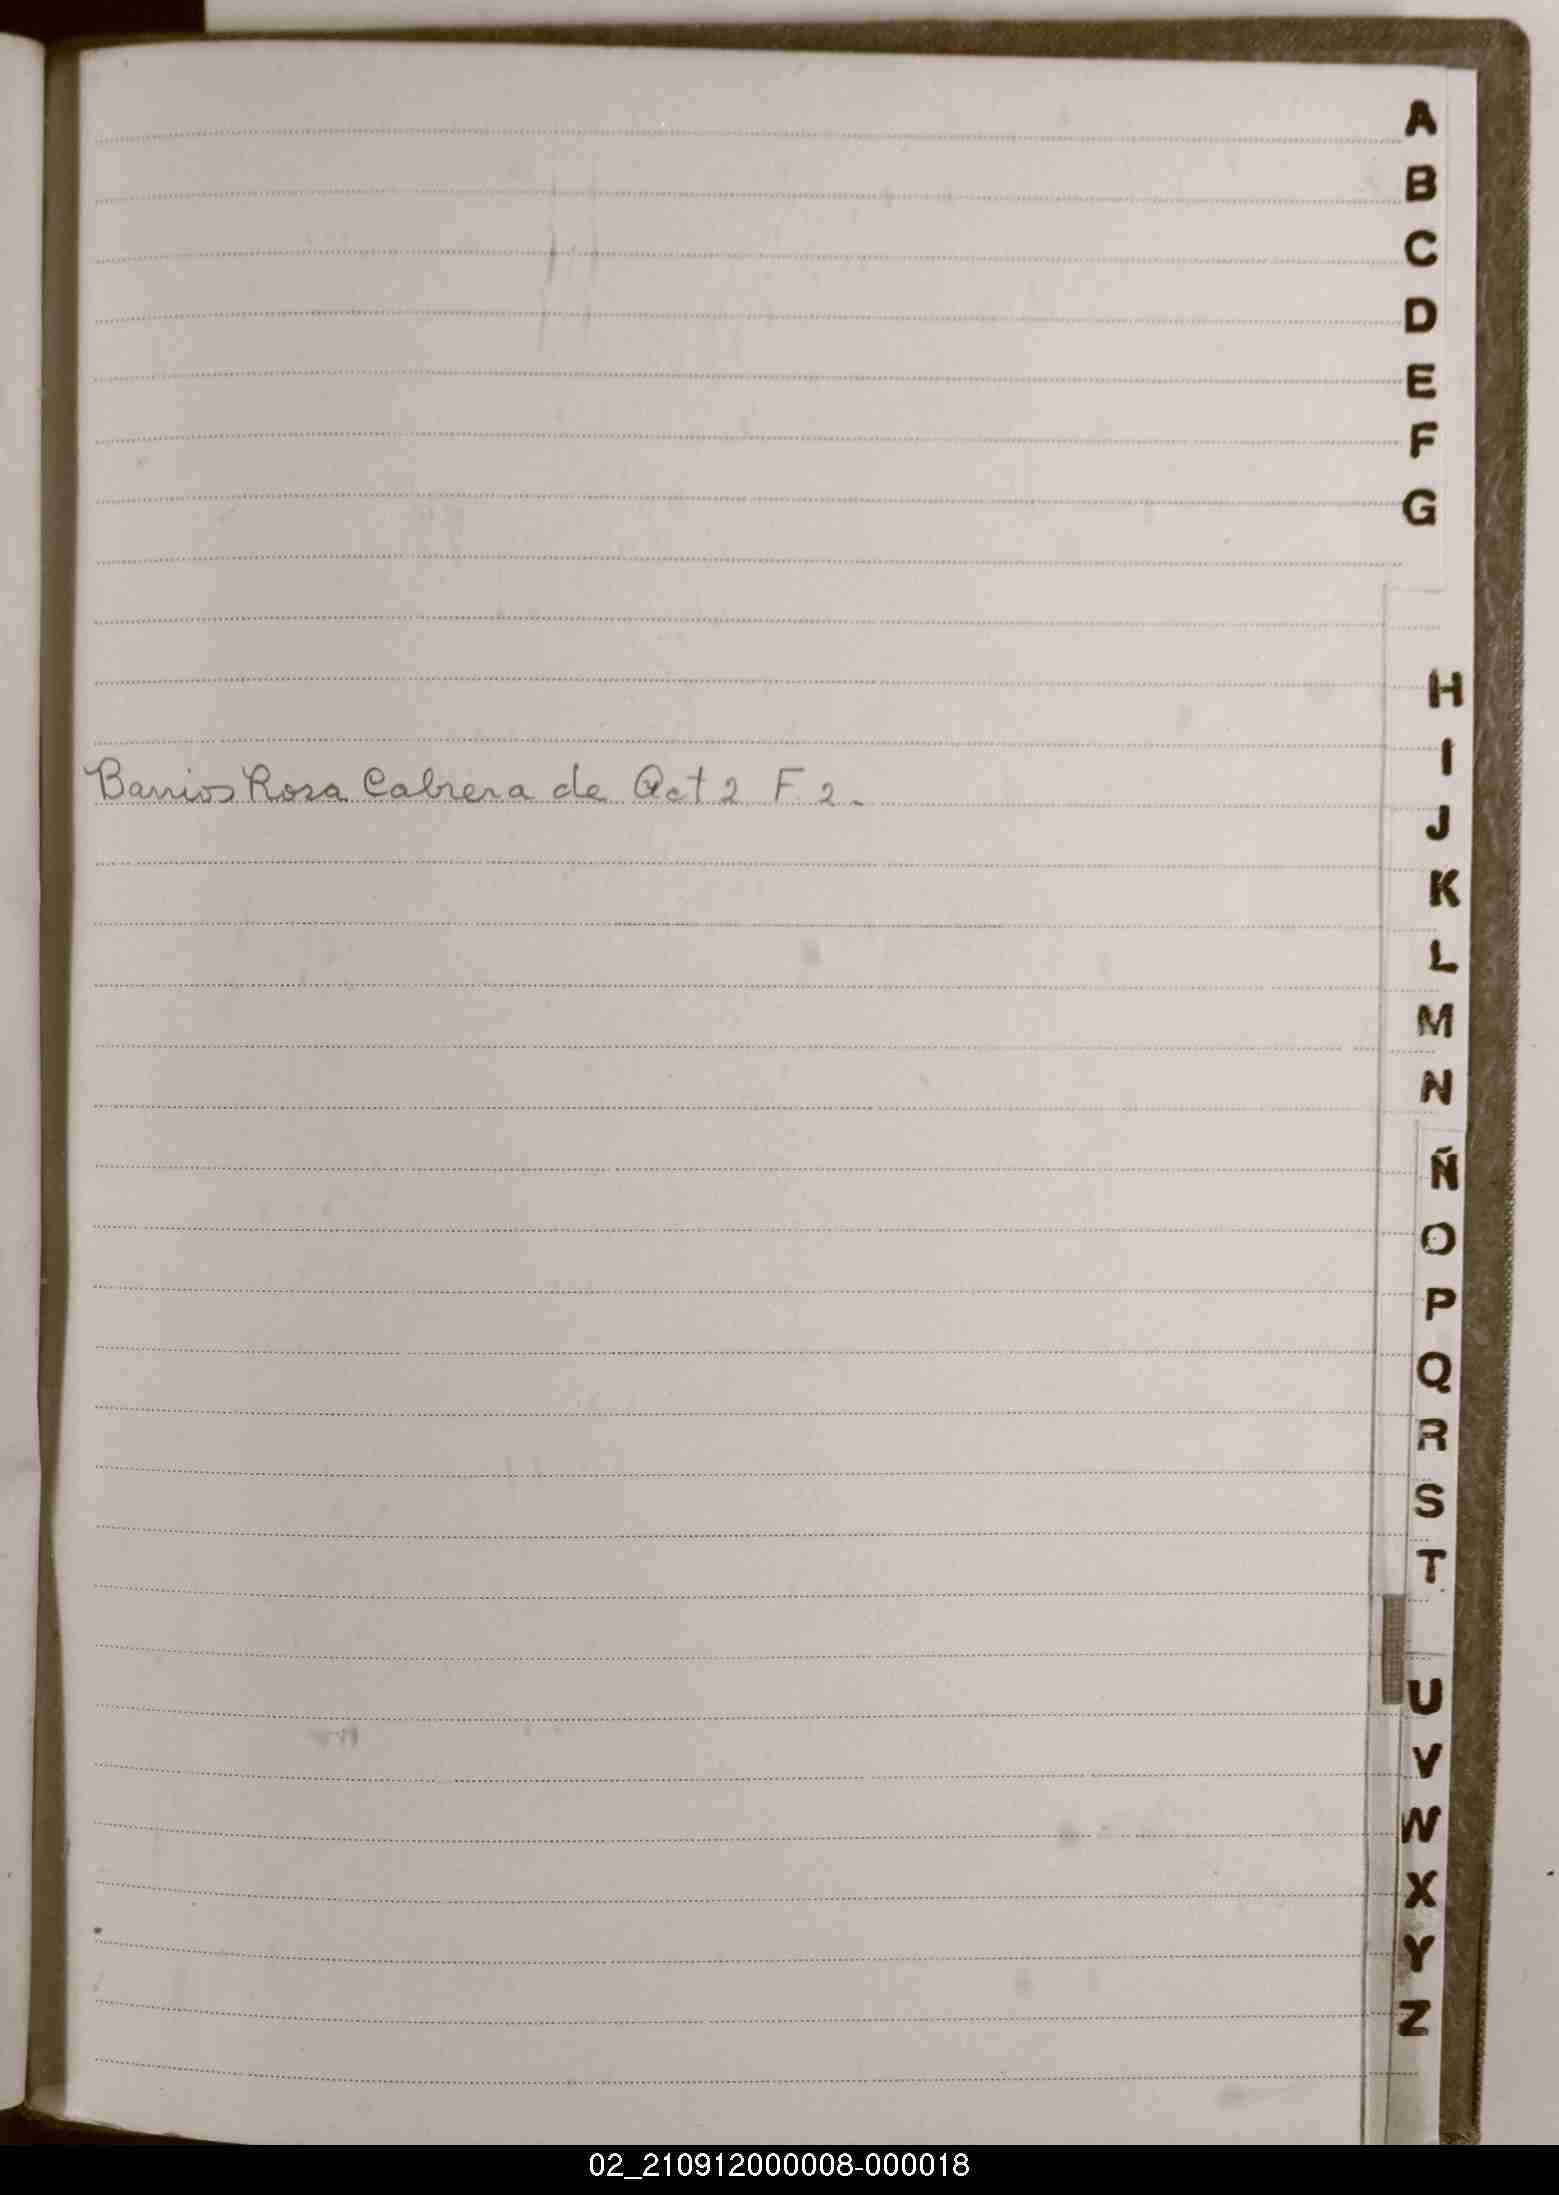 A
B
C
D
E
F
G
H
I
Barrios Rosa Cabrera de Act 2 F. 2.
J
K
L
M
N
Ñ
O
P
Q
R
S
T
U
V
W
X
Y
Z
02_210912000008-000018